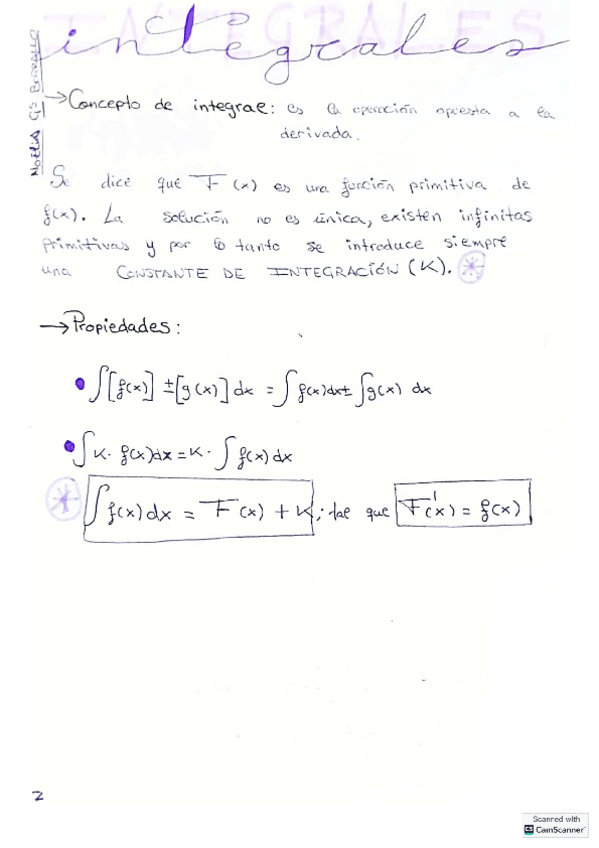 INTEGRALES
integrales
Noelia Gª
→Concepto de integral: es la operación opuesta a la
derivada.
Se dice que F(x) es una función primitiva de
f(x). La solución no es única, existen infinitas
primitivas y por lo tanto se introduce siempre
una CONSTANTE DE INTEGRACIÓN (K). *
→Propiedades:
• ∫[f(x)] ± [g(x)] dx = ∫f(x)dx ± ∫g(x) dx
• ∫K · f(x)dx = K · ∫f(x) dx
* ∫f(x) dx = F(x) + K; tal que F'(x) = f(x)
2
Scanned with
CS CamScanner